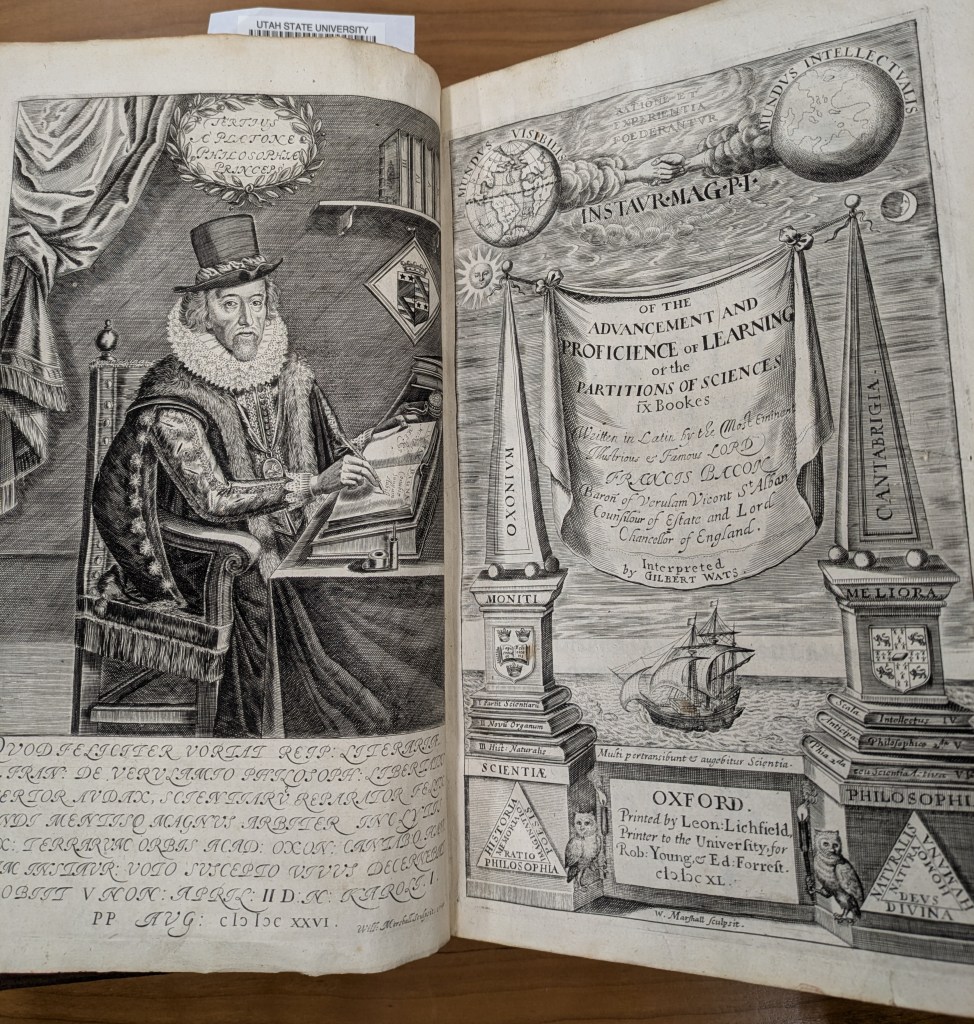 UTAH STATE UNIVERSITY
TERTIUS
A PLATONE
PHILOSOPHIÆ
PRINCEPS
QUOD FELICITER VORTAT REIP: LITERARIÆ
FRAN: DE VERULAMIO PHILOSOPH: LIBERTATIS
AUDAX, SCIENTIARŪ REPARATOR FELIX
MUNDI MENTISQ MAGNUS ARBITER INCLYTIS
TERRARUM ORBIS ACAD: OXON: CANTABQ
INSTAUR: VOTO SUSCEPTO VIVUS DECERNEBAT
OBIIT V NON: APRIL: II D: N: KAROLI I
PP AUG: cIↄIↄc XXVI.
Will: Marshall sculpsit
RATIONE ET
EXPERIENTIA
FOEDERANTUR
MUNDUS VISIBILIS
MUNDUS INTELLECTUALIS
INSTAUR·MAG·P·I·
OF THE
ADVANCEMENT AND
PROFICIENCE OF LEARNING
or the
PARTITIONS OF SCIENCES
IX Bookes
Written in Latin by the Most Eminent
Illustrious & Famous LORD
FRANCIS BACON
Baron of Verulam Vicont St Alban
Counsilour of Estate and Lord
Chancellor of England.
Interpreted
by GILBERT WATS.
OXONIUM
CANTABRIGIA.
MONITI
MELIORA
I Partit Scientiarū
II Novū Organum
III Hist: Naturalis
Scala Intellectus
Anticipa: Philosophiæ
Phia 2da seu Scientia Activa
Multi pertransibunt & augebitur Scientia
SCIENTIÆ
PHILOSOPHI
HISTORIA
MEMORIA
POESIS
RATIO
PHILOSOPHIA
OXFORD.
Printed by Leon: Lichfield,
Printer to the University, for
Rob: Young, & Ed: Forrest.
cIↄIↄc XL.
NATURALIS
NATURA
HOMO
HUMANA
DEUS
DIVINA
W. Marshall sculpsit.